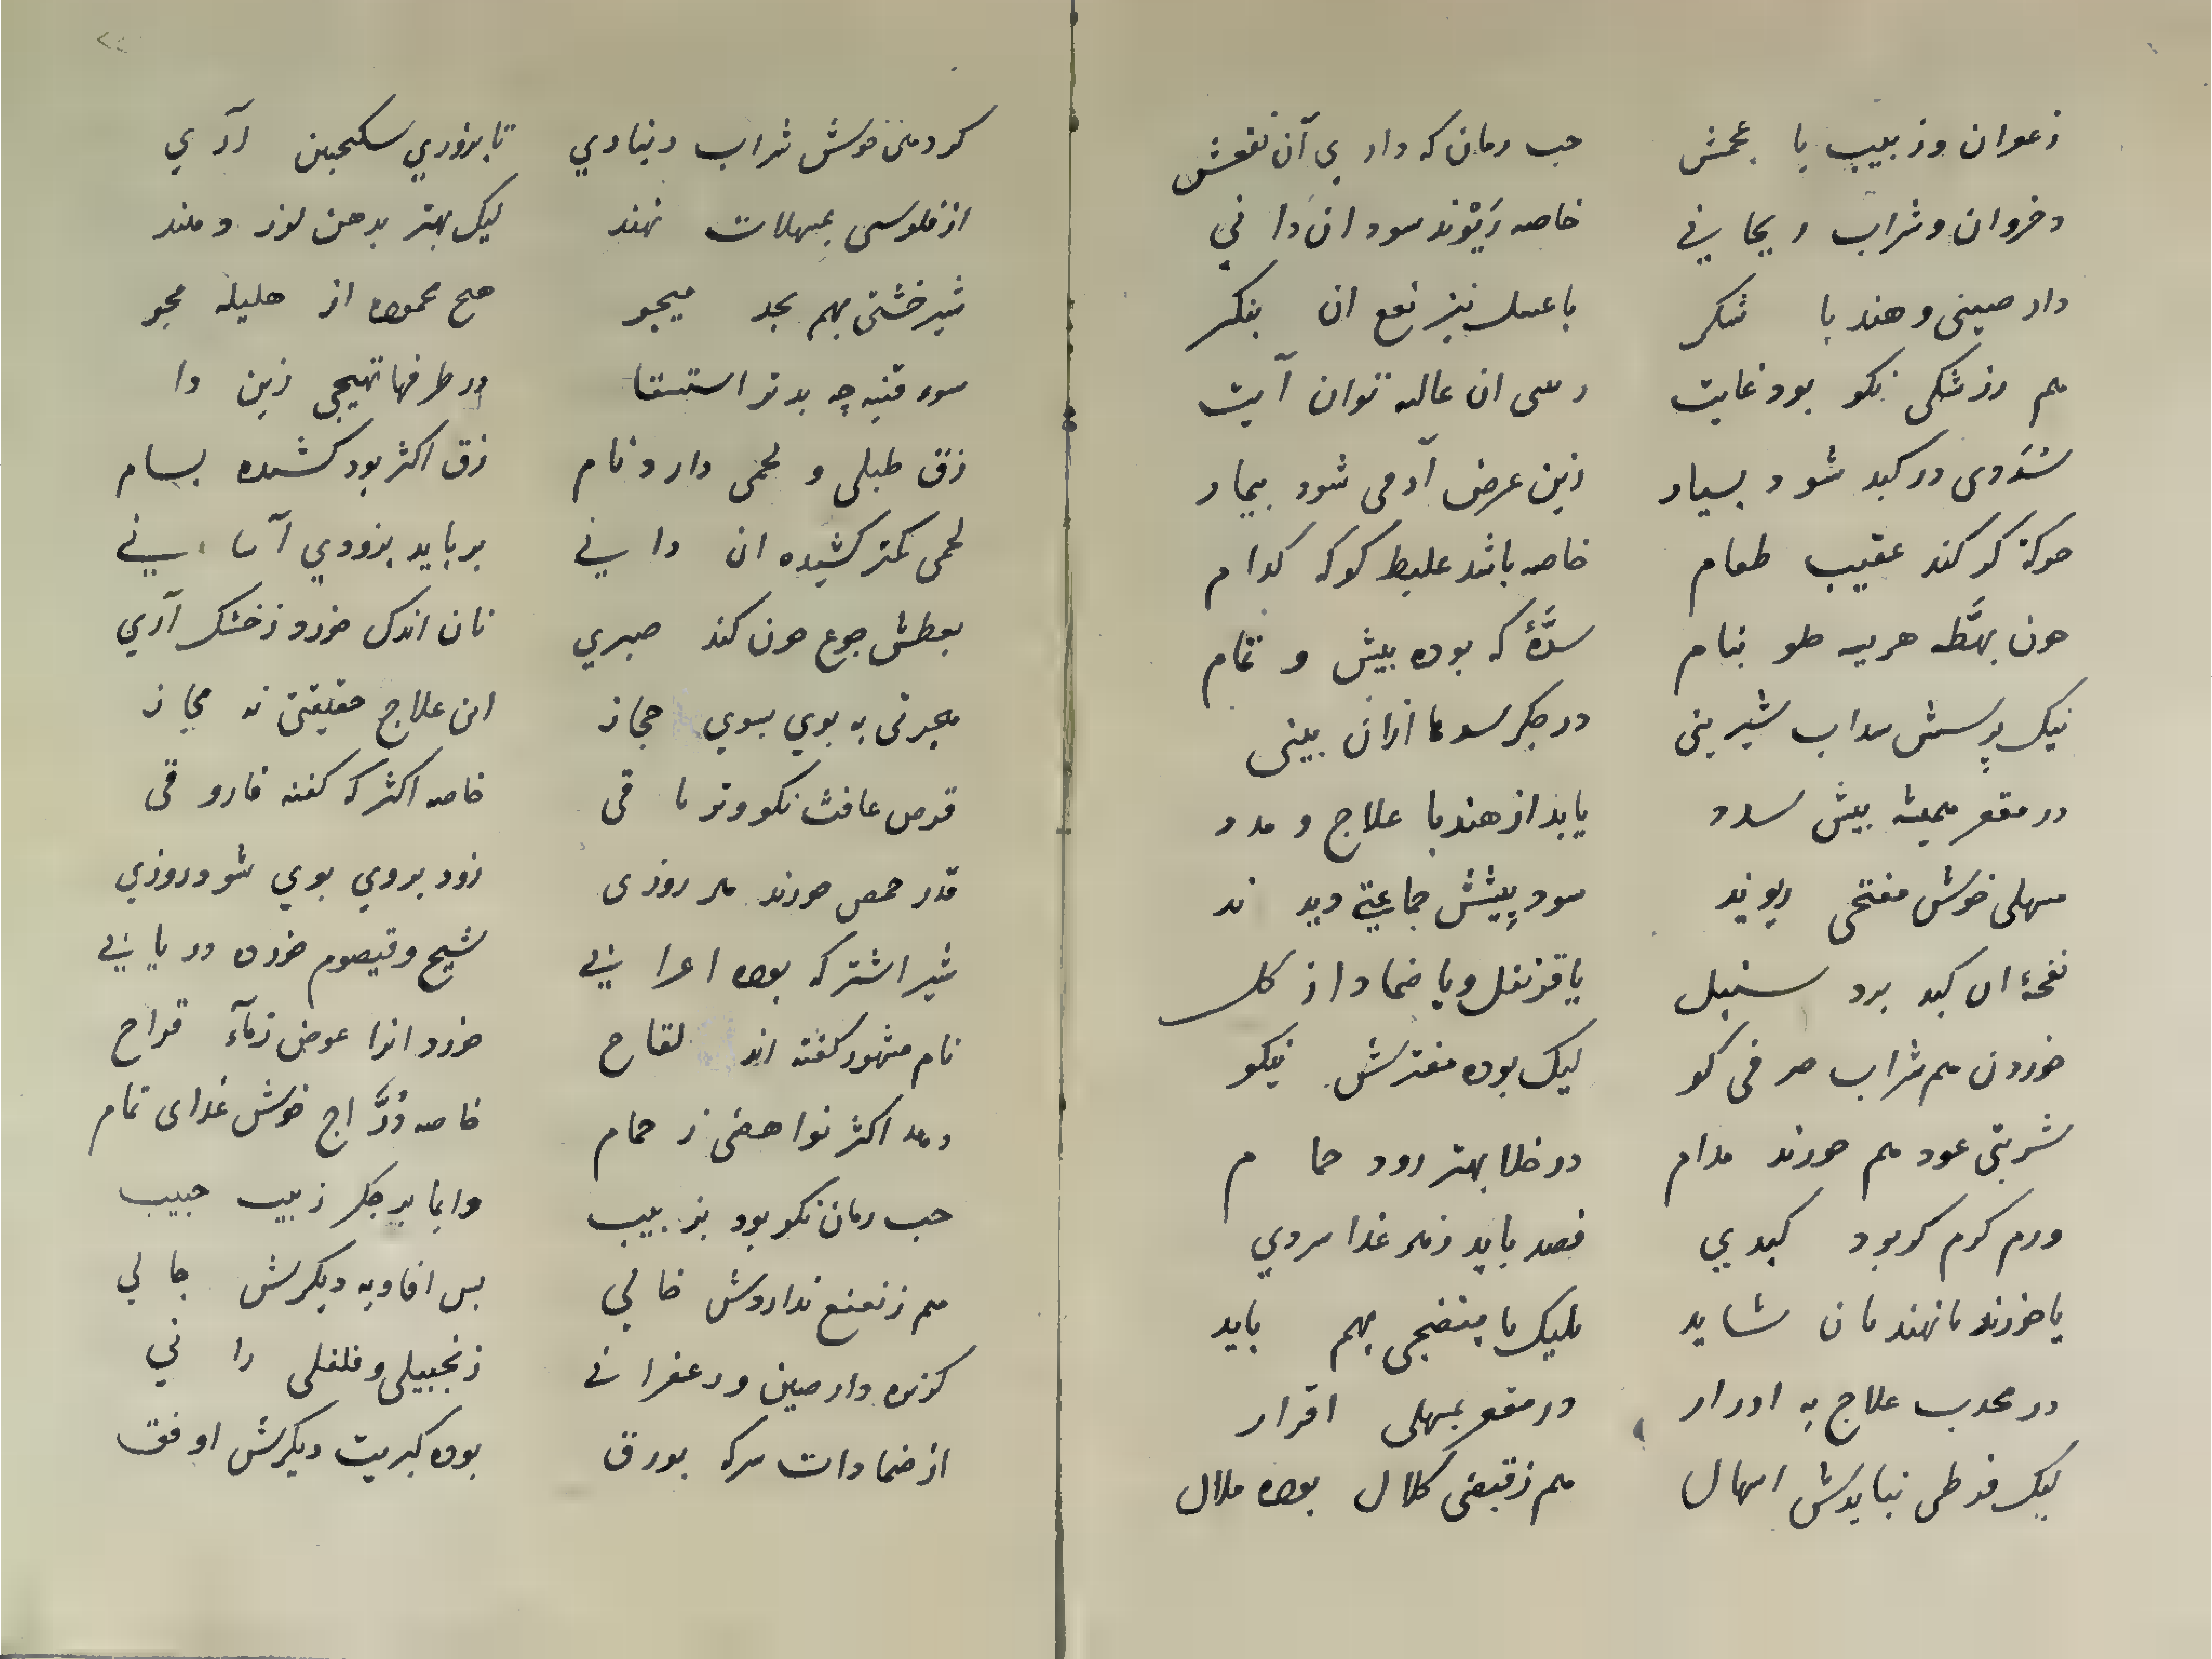 زعوان وزبیب با عجمش حب رمان که داری آن نفعش
وخروان وشراب ریحانی خاصه ریوند سود ان دانی
دارصینی وهندبا شکر باعسل نیز نفع ان بنکر
هم رزشکی نکو بود غایت رسی ان عالیه توان آیت
سددی در کبد شود بسیار زین عرض آدمی شود بیمار
حرکة کر کند عقیب طعام خاصه باشد غلیظ کو که کدام
چون بهطه هریسه حلو بنام سدۀ که بوده بیش و تمام
نیک پرسش سداب شیرینی در جکر سدها ازان بینی
در مقعر همیشه بیش سدد یابد از هندبا علاج و مدد
مسهلی خوش مفتحی ریوند سود بیشش جماعتی دیدند
نفخۀ ان کبد برد سنبل یا قرنفل ویا ضماد از کل
خوردن هم شراب صرفی کو لیک بوده مفترش نیکو
شربتی عود هم خورند مدام در خلا بهتر رود حمام
ورم کرم کر بود کبدی فصد باید زهر غذا سردی
یا خورند مانهندمان شاید ملیک با منضجی بهم باید
در محدب علاج به ادرار در مقعر بمسهلی اقرار
لیک فرطی نبایدش اسهال هم زقبضی کلال بوده ملال
کر دهی خوش شراب دیناری تا بزوری سکنجبین آری
از فلوسی بمسهلات نهند لیک بهتر بدهن لوز دهند
شیرخشتی بهم بجد میجو هیچ محموده از هلیله مجو
سوء قنیه چه بدتر استسقا در طرفها تهیجی زین را
زق طبلی و لحمی دارد نام زق اکثر بود کشنده بسام
لحمی کمتر کشیده ان دانی برباید بزودی آسانی
بعطش جوع چون کند صبری نان اندک خورد زخشک آری
هجرتی به بوی بسوی حجاز این علاج حقیقتی نه مجاز
قرص غافث نکو وتریاقی خاصه اکثر که کفته فاروقی
قدر حمص خورند هر روزی زود بروی بوی شود روزی
شیر اشتر که بوده اعرابی شیح وقیصوم خورده دریابی
نام مشهور کفته اند لقاح خورد انرا عوض زمآء قراح
دهد اکثر نواهضی ز حمام خاصه دراج خوش غذای تمام
حب رمان نکو بود بزبیب دایما بر جکر زبیب حبیب
هم زنعنع نداردش خالی بس افاویه دیکرش حالی
کزبره دارصین وزعفرانی زنجبیلی وفلفلی رانی
از ضمادات سرکه بورق بوده کبریت دیکرش اوفق